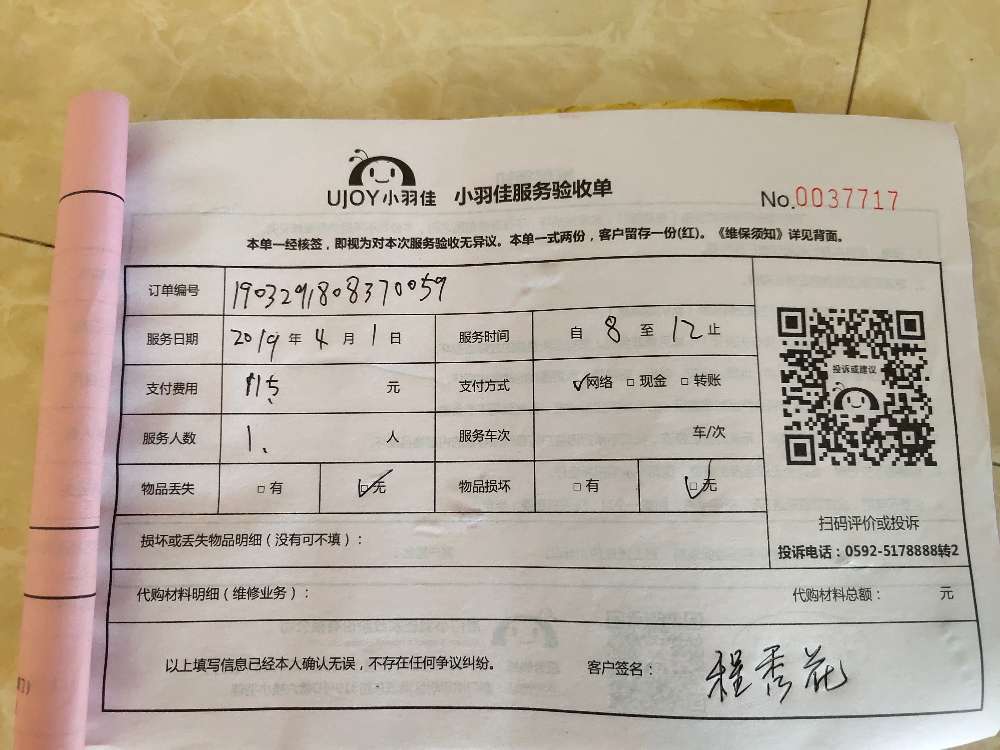 UJOY小羽佳 小羽佳服务验收单
No.0037717
本单一经核签，即视为对本次服务验收无异议。本单一式两份，客户留存一份(红)。《维保须知》详见背面。
订单编号 1903291808370059
服务日期 2019年4月1日 服务时间 自8至12止
支付费用 115元 支付方式 ✓网络 □现金 □转账
服务人数 1.人 服务车次 车/次
物品丢失 □有 ☑无 物品损坏 □有 ☑无
投诉或建议
扫码评价或投诉
投诉电话：0592-5178888转2
损坏或丢失物品明细（没有可不填）：
代购材料明细（维修业务）： 代购材料总额： 元
以上填写信息已经本人确认无误，不存在任何争议纠纷。 客户签名：程秀花